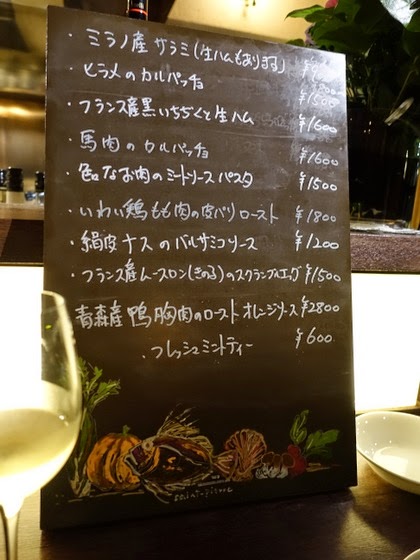 ・ミラノ産 サラミ(生ハムもあります)
・ヒラメのカルパッチョ ¥1500
・フランス産黒いちぢくと生ハム ¥1600
・馬肉のカルパッチョ ¥1600
・色々なお肉のミートソースパスタ ¥1500
・いわい鶏もも肉の皮パリロースト ¥1800
・絹皮ナスのバルサミコソース ¥1200
・フランス産ムースロン(きのこ)のスクランブルエッグ ¥1500
青森産 鴨胸肉のロースト オレンジソース ¥2800
・フレッシュミントティー ¥600